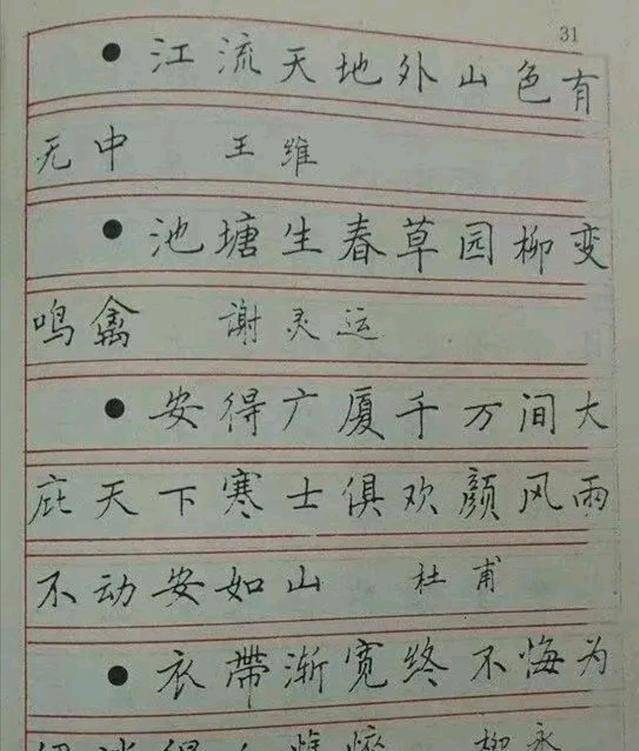 31
●江流天地外山色有
无中 王维
●池塘生春草园柳变
鸣禽 谢灵运
●安得广厦千万间大
庇天下寒士俱欢颜风雨
不动安如山 杜甫
●衣带渐宽终不悔为
柳永